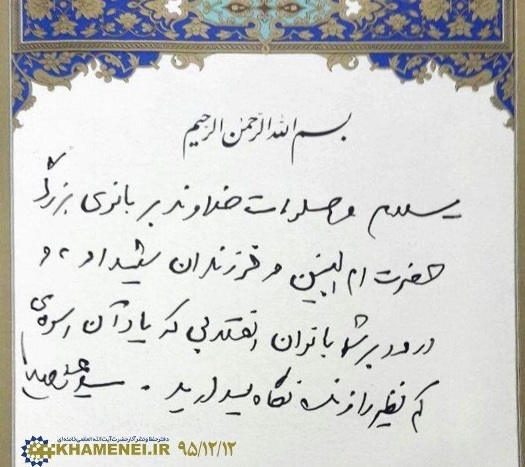 بسم الله الرحمن الرحیم
سلام و صلوات خداوند بر بانوی بزرگ
حضرت ام البنین و فرزندان شهید او، و
درود بر شما بانوان انقلابی که یاد آن اسوه‌ی
کم نظیر را زنده نگاه میدارید.
دفتر حفظ و نشر آثار حضرت آیت‌الله العظمی خامنه‌ای
KHAMENEI.IR ۹۵/۱۲/۱۲